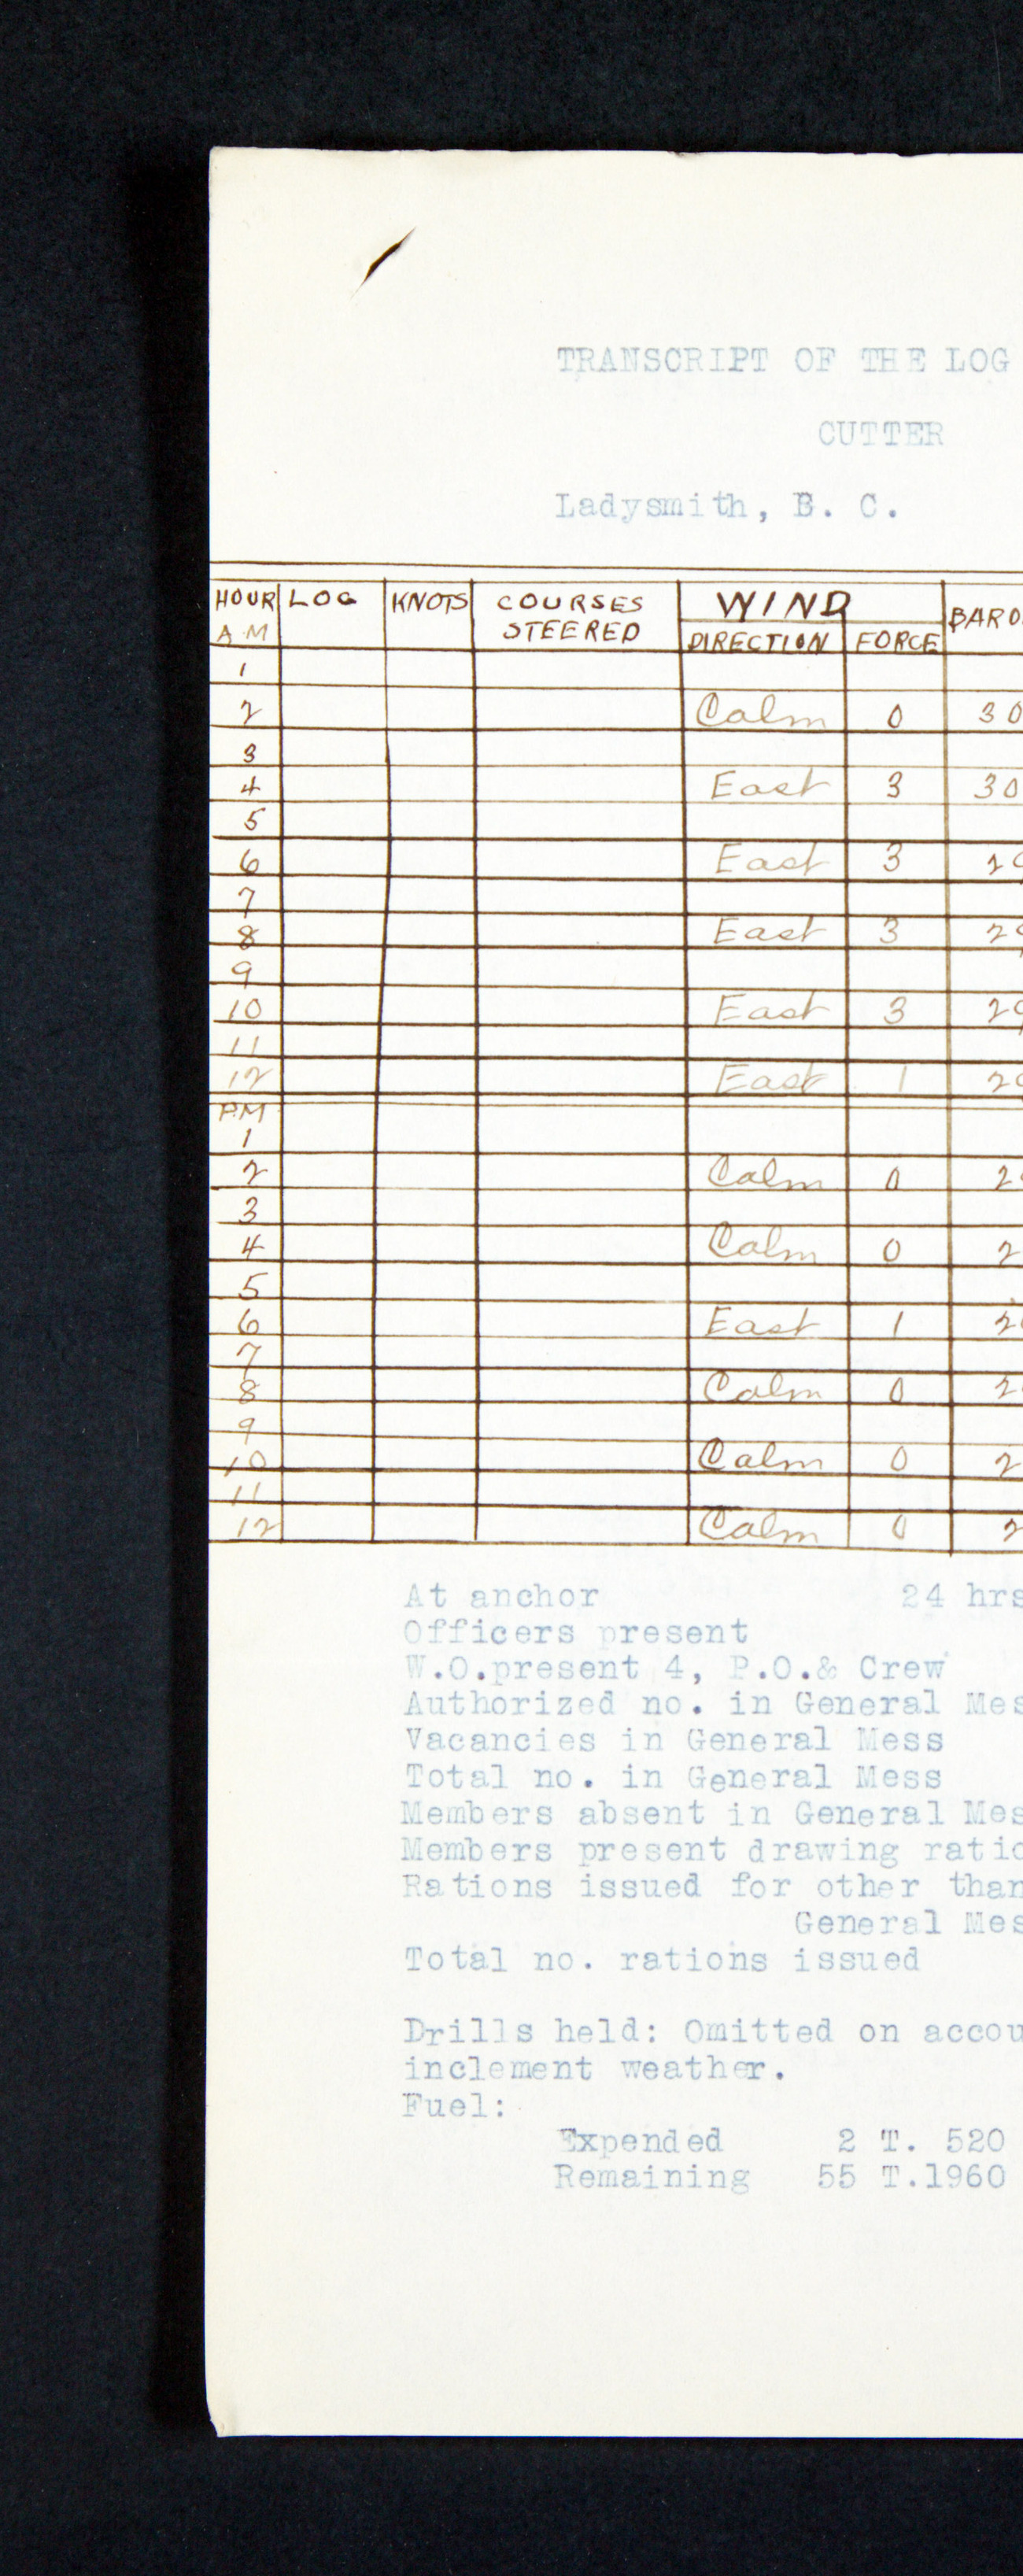 TRANSCRIPT OF THE LOG
CUTTER
Ladysmith, B. C.
HOUR LOG KNOTS COURSES STEERED WIND BARO
A.M DIRECTION FORCE
1
2 Calm 0 30
3
4 East 3 30
5
6 East 3 29
7
8 East 3 29
9
10 East 3 29
11
12 East 1 29
P.M
1
2 Calm 0 29
3
4 Calm 0 2
5
6 East 1 29
7
8 Calm 0 29
9
10 Calm 0 2
11
12 Calm 0 2
At anchor 24 hrs
Officers present
W.O.present 4, P.O.& Crew
Authorized no. in General Mes
Vacancies in General Mess
Total no. in General Mess
Members absent in General Mes
Members present drawing ratio
Rations issued for other than
General Mes
Total no. rations issued
Drills held: Omitted on accou
inclement weather.
Fuel:
Expended 2 T. 520
Remaining 55 T.1960